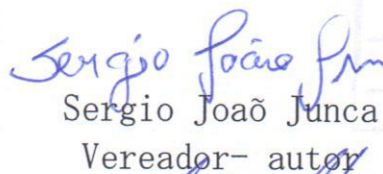 Sergio João
Sergio Joaõ Junca
Vereador- autor